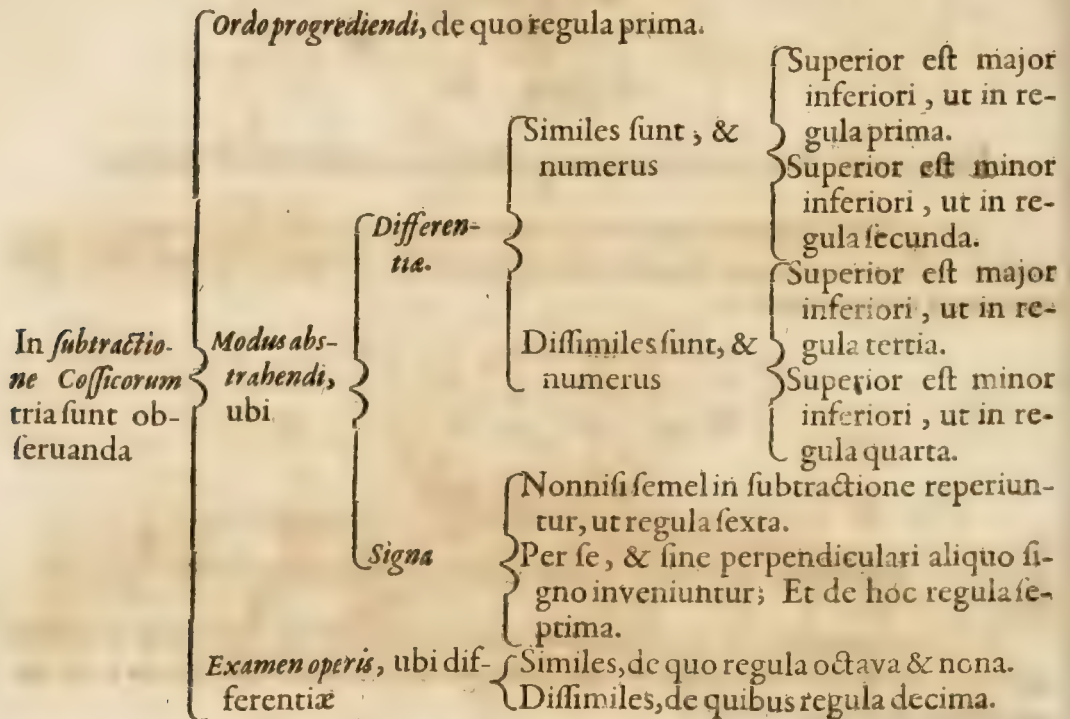 Ordo progrediendi, de quo regula prima.
In ſubtractio-
ne Coſſicorum
tria ſunt ob-
ſeruanda
Modus abs-
trahendi,
ubi
Differen-
tiæ.
Similes ſunt, &
numerus
Superior eſt major
inferiori, ut in re-
gula prima.
Superior eſt minor
inferiori, ut in re-
gula ſecunda.
Diſſimiles ſunt, &
numerus
Superior eſt major
inferiori, ut in re-
gula tertia.
Superior eſt minor
inferiori, ut in re-
gula quarta.
Signa
Nonniſi ſemel in ſubtractione reperiun-
tur, ut regula ſexta.
Per ſe, & ſine perpendiculari aliquo ſi-
gno inveniuntur; Et de hoc regula ſe-
ptima.
Examen operis, ubi dif-
ferentiæ
Similes, de quo regula octava & nona.
Diſſimiles, de quibus regula decima.